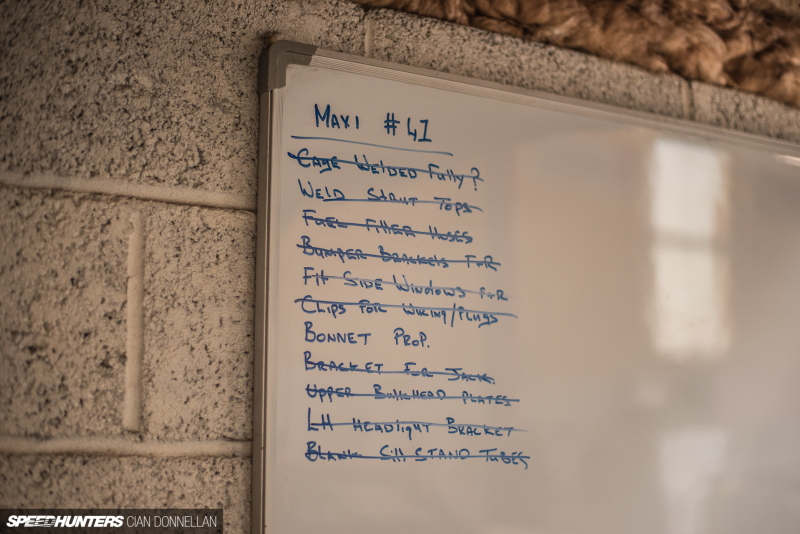 MAXI #41
CAGE WELDED Fully?
WELD STRUT TOPS
FUEL FILLER HOSES
BUMPER BRACKETS F+R
Fit SIDE WINDOWS F+R
CLIPS FOR WIRING/PLUGS
BONNET PROP.
BRACKET FOR JACK.
UPPER BULKHEAD PLATES
LH HEADlight BRACKET
BLANK Sill STAND TUBES
SPEEDHUNTERS CIAN DONNELLAN